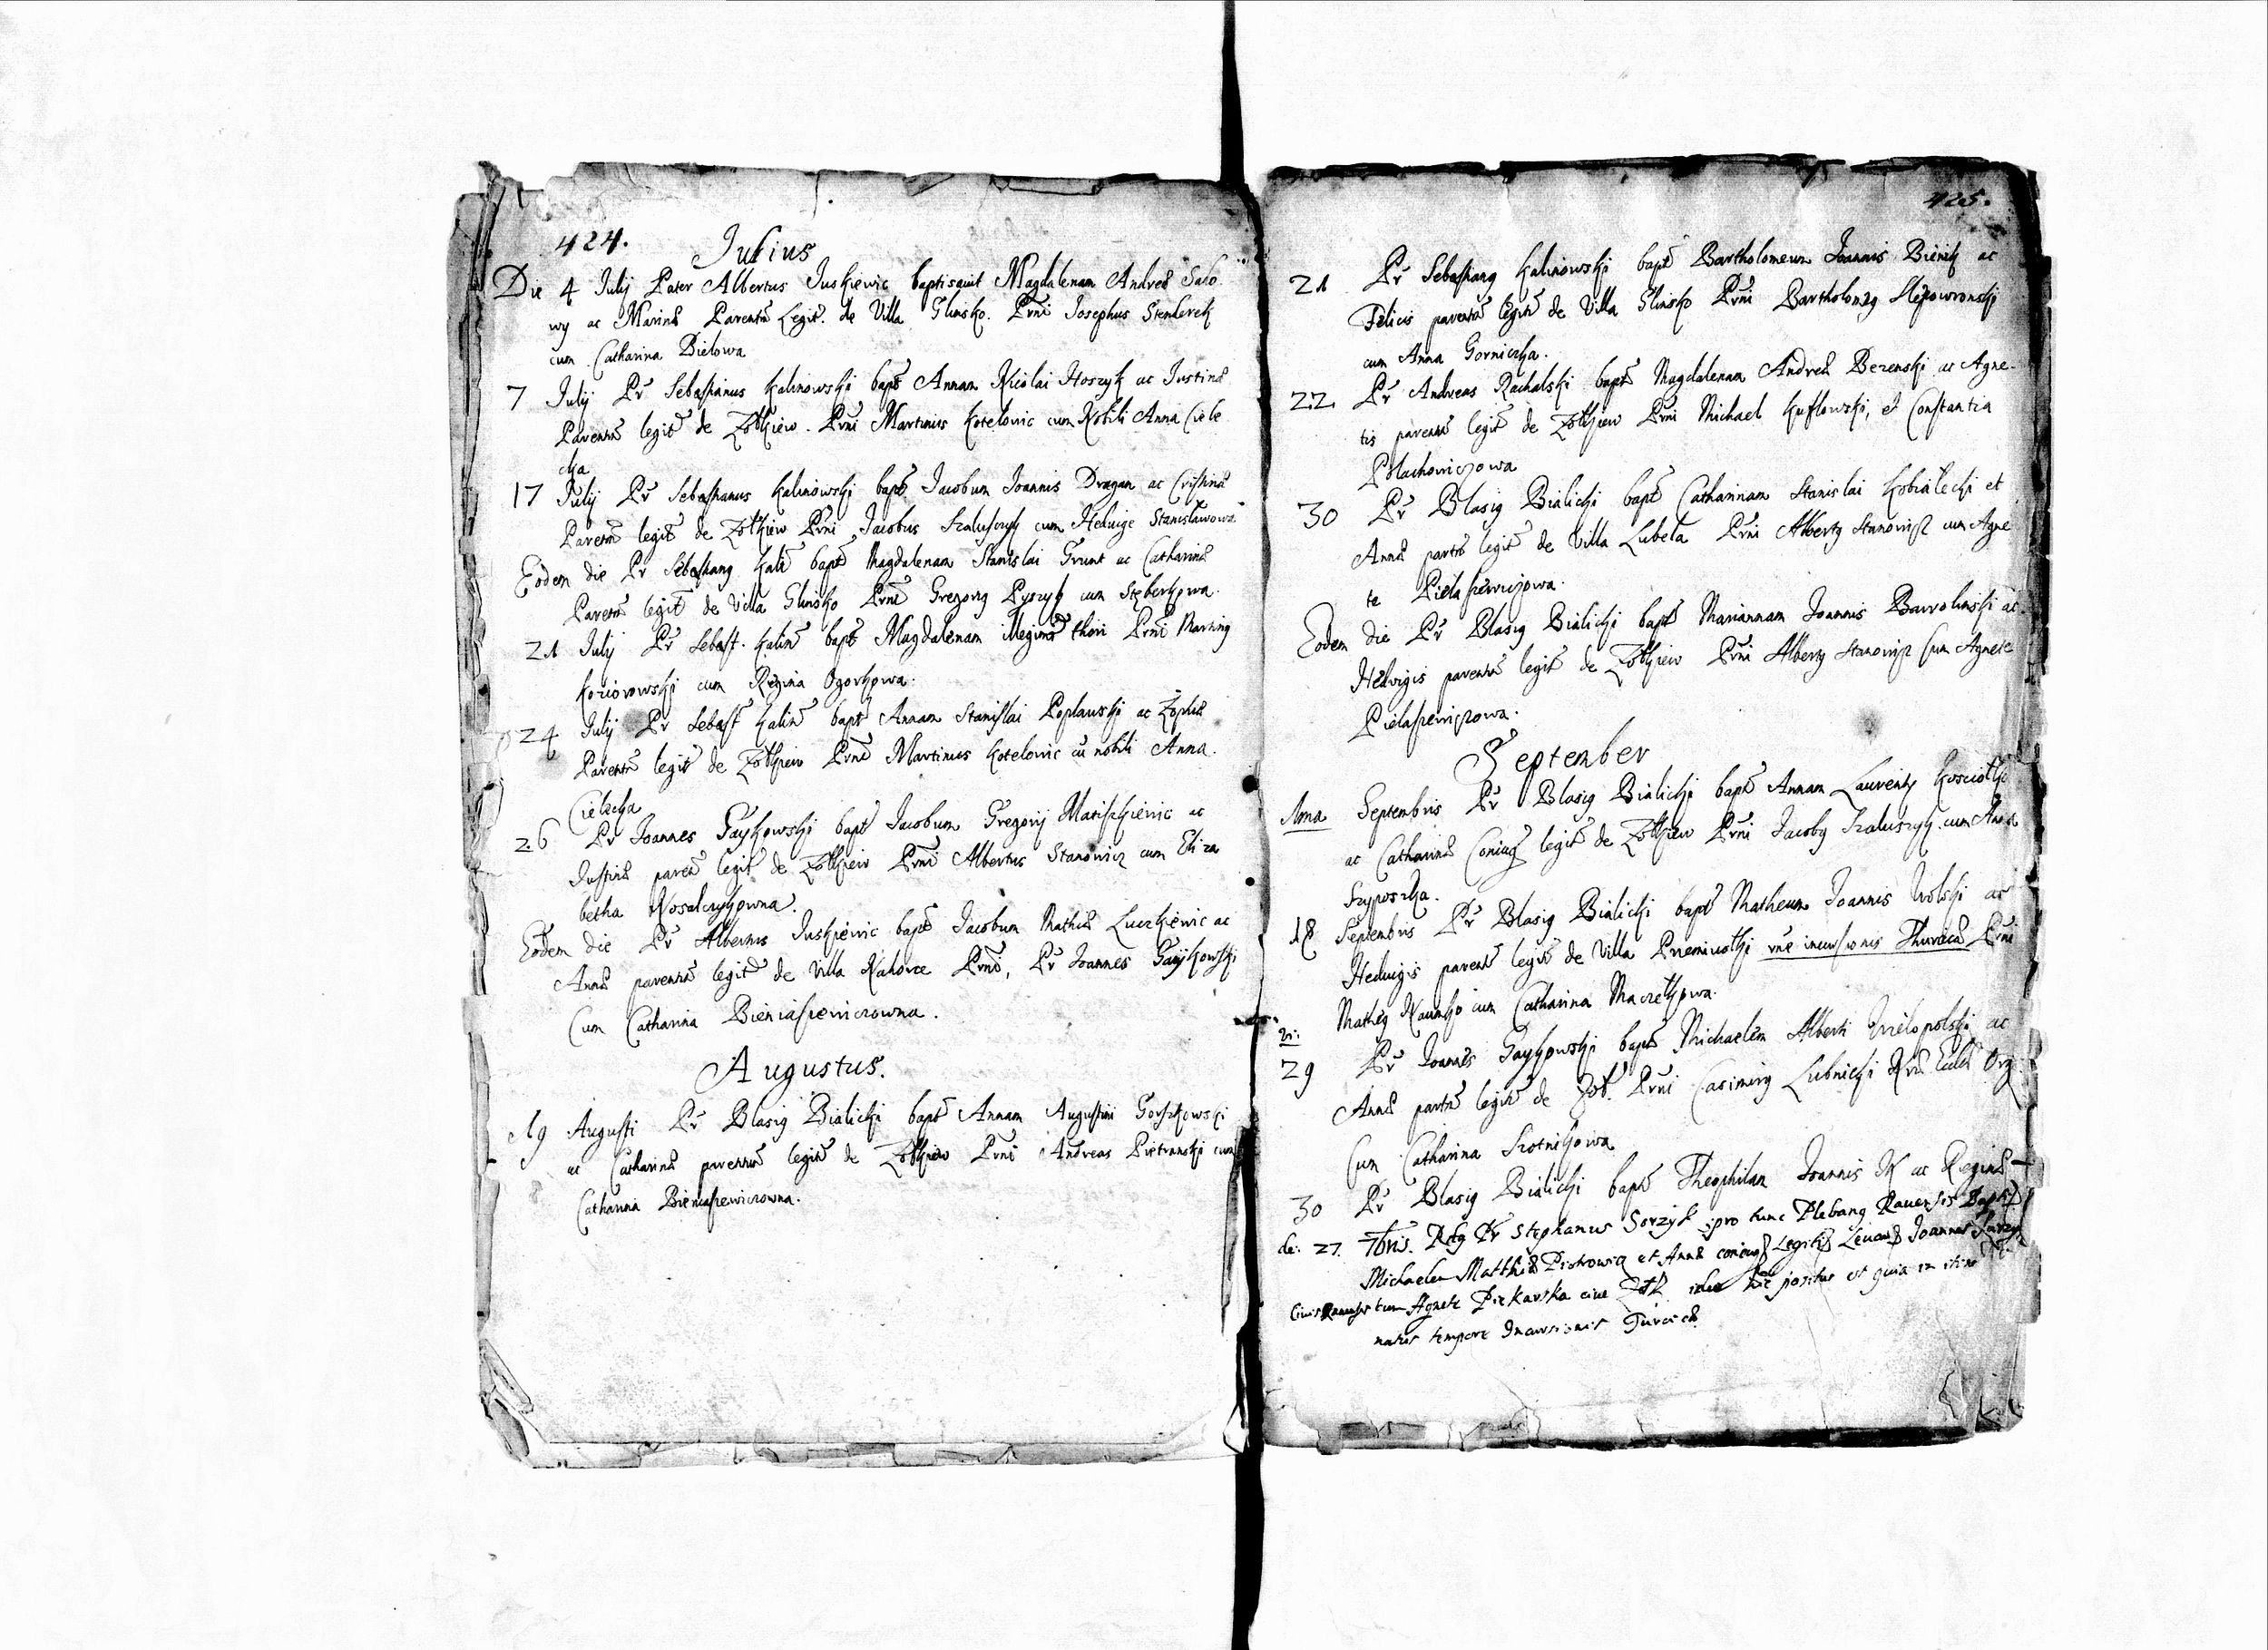 424.
Julius
Die 4 Julij Pater Albertus Juskiewic baptisauit Magdalenam Andreæ Sabo
wy ac Marinæ Parentũ Legit. de Villa Glinsko. Prni Josephus Stenderek
cum Catharina Bielowa
7 Julij Pr Sebastianus Kalinowski bapt Annam Nicolai Hoszyk ac Justinæ
Parentũ legit de Zołkiew. Prni Martinus Kotelovic cum Nobili Anna Ciele
cka
17 Julij Pr Sebastianus Kalinowski bapt Jacobum Joannis Dragan ac Cristinæ
Parentũ legit de Zołkiew Prni Jacobus Szaluszyk cum Heduige Stanisławowa
Eodem die Pr Sebastiang Kali bapt Magdalenam Stanislai Grunt ac Catharinæ
Parentũ legit de Villa Glinsko Prni Gregorig Pyszyk cum Stęberkowa.
21 Julij Pr Sebast. Kalin bapt Magdalenam illegimi thori Prni Marting
Koziorowski cum Regina Ogorkowa.
24 Julij Pr Sebast Kalin bapt Annam Stanislai Poplauski ac Zophiæ
Parentũ legit de Zołkiew Prni Martinus Kotelovic cũ nobili Anna.
Cielecka
26 Pr Joannes Gaykowski bapt Jacobum Gregorij Matiszkiewic ac
Justinæ paren legit de Zołkiew Prni Albertus Stanowicz cum Eliza
betha Kosalczykowna.
Eodem die Pr Albertus Juskiewic bapt Jacobum Mathiæ Luczkiewic ac
Annæ parentũ legit de Villa Nahorce Prni, Pr Joannes Gaykowski
Cum Catharina Bieniasiewiczowna.
Augustus.
19 Augusti Pr Blasig Bialicki bapt Annam Augustini Gorszkowski
ac Catharinæ parentũ legit de Zołkiew Prni Andreas Pietranski cum
Catharina Bieniasiewiczowna.
425.
21 Pr Sebastiang Kalinowski bapt Bartholomeum Joannis Bienik ac
Felicis parentũ legit de Villa Glinsko Prni Bartholomæg Slepowronski
cum Anna Gorniczka.
22 Pr Andreas Rachalski bapt Magdalenam Andreæ Bezenski ac Agne-
tis parentũ legit de Zołkiew Prni Michael Kuflowski, et Constantia
Polachowiczowa
30 Pr Blasig Bialicki bapt Catharinam Stanislai Kobiałecki et
Annæ partũ legit de Villa Lubela Prni Albertg Stanowisz cum Agne
te Pielasiewiczowa.
Eodem die Pr Blasig Bialicki bapt Mariannam Joannis Barwolinski ac
Hedvigis parentũ legit de Zołkiew Prni Albertg Stanowisz cum Agnete
Pielasiewiczowa.
September
1ma Septembris Pr Blasig Bialicki bapt Annam Laurentij Kosciołki
ac Catharinæ Coniug legit de Zołkiew Prni Jacobg Szaluszyk cum Anna
Szyposzka.
18 Septembris Pr Blasig Bialicki bapt Matheum Joannis Wolski ac
Hedwigis parentũ legit de Villa Przemiwolki rne incursionis Thuricæ Prni
Mathęg Naumko cum Catharina Maczetkowa.
29 Pr Joannes Gaykowski bapt Michaelem Alberti Wielopolski ac
Annæ partũ legit de Zoł. Prni Casimirg Lubnicki Eccl Org
Cum Catharina Szotnikowa
30 Pr Blasig Bialicki bapt Theophilam Joannis N ac Reginæ —
de: 27. 7bris. Pr Stephanus Gorzyk pro tunc Plebang Rauensis
Michaelem Matthiæ Piotrowicz et Annæ coniug Legit Levan Joannes
Civis cum Agnete Piekarska hic positus est quia in
natus tempore Incursionis Turcicæ